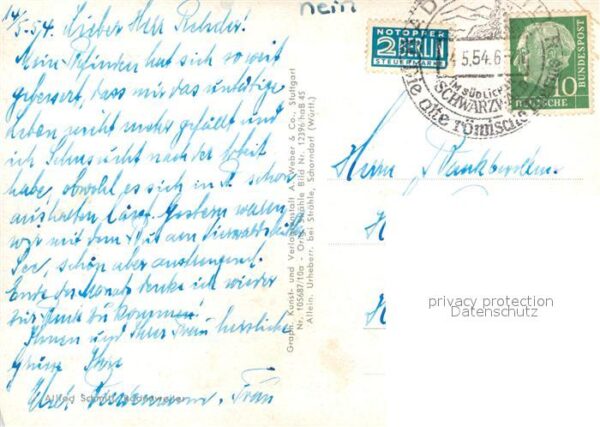 nein
14/5.54. Lieber Herr Rehder!
Mein Befinden hat sich so weit
gebessert, dass mir das untätige
Leben nicht mehr gefällt und
ich Sehnsucht nach der Arbeit
habe, obwohl es sich in schon
aushalten lässt. Gestern waren
wir mit dem am Vierwaldstätter
See, schön aber anstrengend.
Ende des Monats denke ich wieder
zu kommen.
Ihnen und Ihrer Frau herzliche
Grüsse Ihre
Frau
Alfred
Graph. Kunst- und Verlagsanstalt A. Weber & Co., Stuttgart
Nr. 105687/10a - Orig. Strähle Bild Nr. 12396 haB 45
Allein. Urheberr. bei Strähle, Schorndorf (Württ.)
NOTOPFER
2 BERLIN
STEUERMARKE
4.5.54.6
IM SÜDLICHEN
SCHWARZWALD
die alte römische
10
DEUTSCHE
BUNDESPOST
Herrn
H
H
privacy protection
Datenschutz